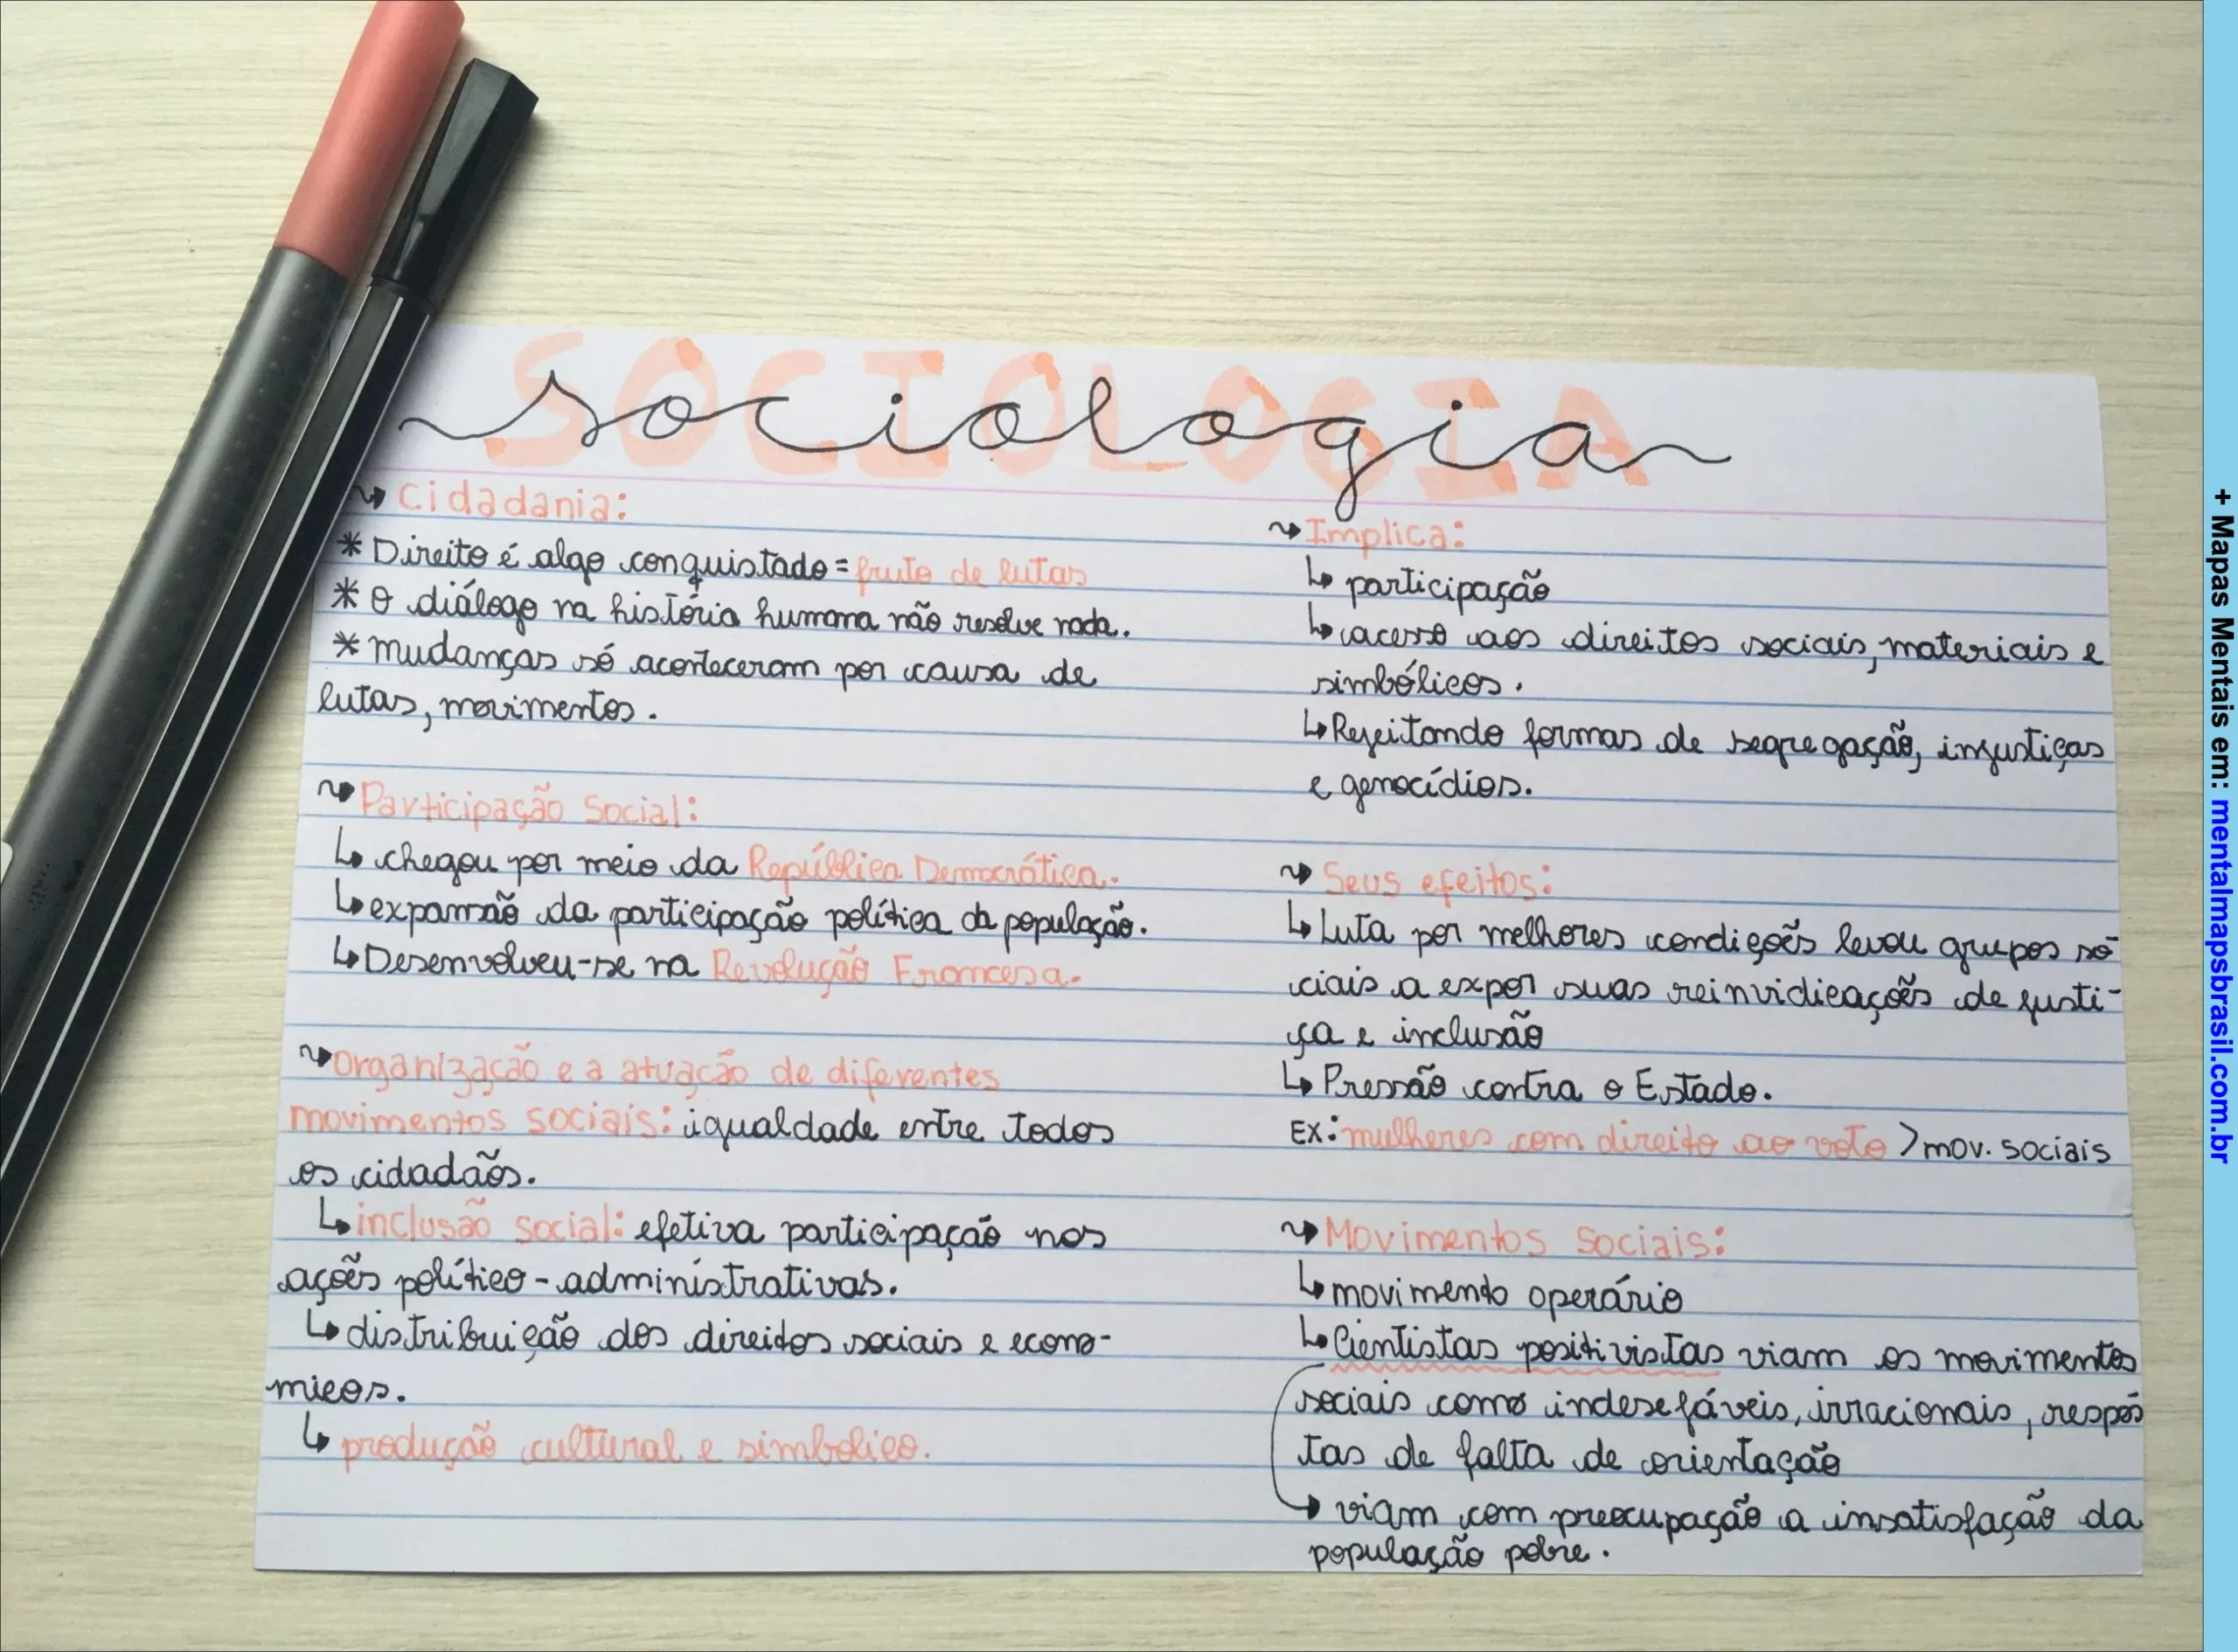 SOCIOLOGIA
sociologia
Cidadania:
* Direito é algo conquistado = fruto de lutas
* O diálogo na história humana não resolve nada.
* mudanças só aconteceram por causa de
lutas, movimentos.
Participação Social:
↳ chegou por meio da República Democrática.
↳ expansão da participação política da população.
↳ Desenvolveu-se na Revolução Francesa.
Organização e a atuação de diferentes
movimentos sociais: igualdade entre todos
os cidadãos.
↳ inclusão social: efetiva participação nos
ações político-administrativas.
↳ distribuição dos direitos sociais e econo-
micos.
↳ produção cultural e simbólico.
Implica:
↳ participação
↳ acesso aos direitos sociais, materiais e
simbólicos.
↳ Rejeitando formas de segregação, injustiças
e genocídios.
Seus efeitos:
↳ Luta por melhores condições levou grupos so-
ciais a expor suas reinvidicações de justi-
ça e inclusão
↳ Pressão contra o Estado.
EX: mulheres com direito ao voto > mov. sociais
Movimentos sociais:
↳ movimento operário
↳ Cientistas positivistas viam os movimentos
sociais como indesejáveis, irracionais, respos
tas de falta de orientação
→ viam com preocupação a insatisfação da
população pobre.
+ Mapas Mentais em: mentalmapsbrasil.com.br